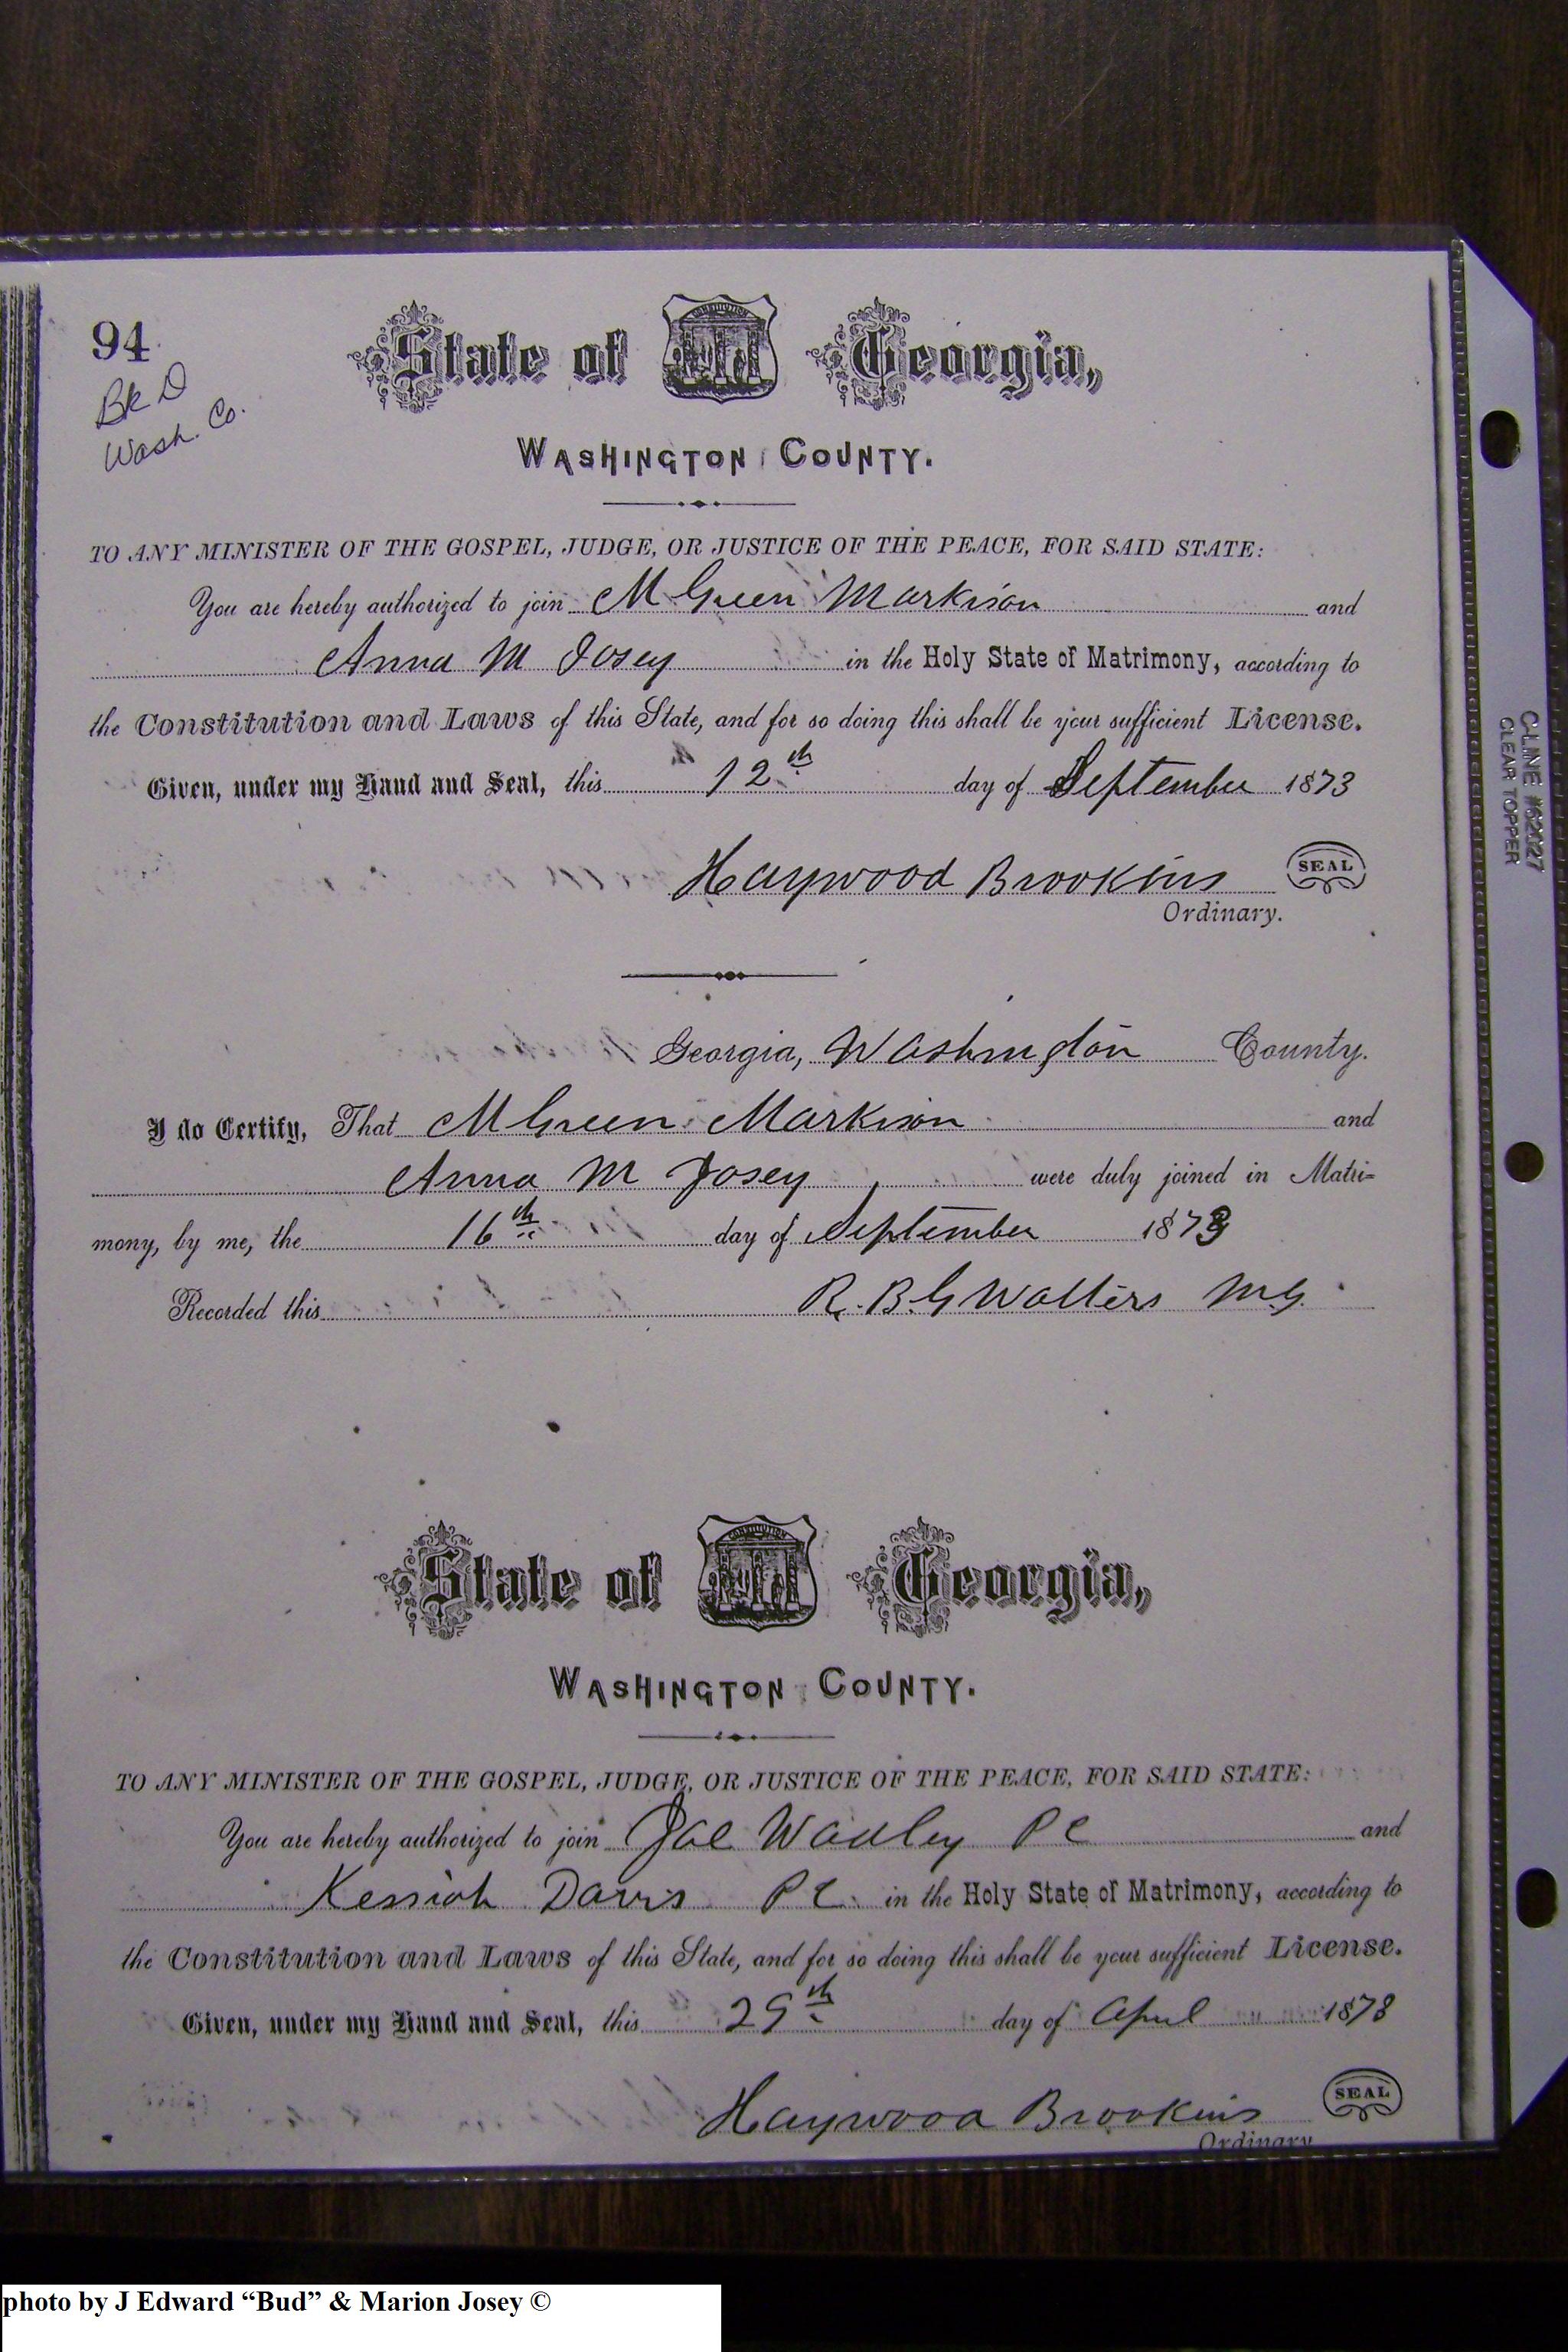 94
Bk D
Wash. Co.
State of Georgia,
WASHINGTON COUNTY.
TO ANY MINISTER OF THE GOSPEL, JUDGE, OR JUSTICE OF THE PEACE, FOR SAID STATE:
You are hereby authorized to join M Green Markison and
Anna M Josey in the Holy State of Matrimony, according to
the Constitution and Laws of this State, and for so doing this shall be your sufficient License.
Given, under my Hand and Seal, this 12th day of September 1873
Haywood Brookins SEAL
Ordinary.
Georgia, Washington County.
I do Certify, That M Green Markison and
Anna M Josey were duly joined in Matri-
mony, by me, the 16th day of September 1873
Recorded this R. B. G Walters M.G.
State of Georgia,
WASHINGTON COUNTY.
TO ANY MINISTER OF THE GOSPEL, JUDGE, OR JUSTICE OF THE PEACE, FOR SAID STATE:
You are hereby authorized to join Joe Wadley PC and
Kessiah Davis PC in the Holy State of Matrimony, according to
the Constitution and Laws of this State, and for so doing this shall be your sufficient License.
Given, under my Hand and Seal, this 29th day of April 1878
Haywood Brookins SEAL
Ordinary
C-LINE #62027
CLEAR TOPPER
photo by J Edward “Bud” & Marion Josey ©